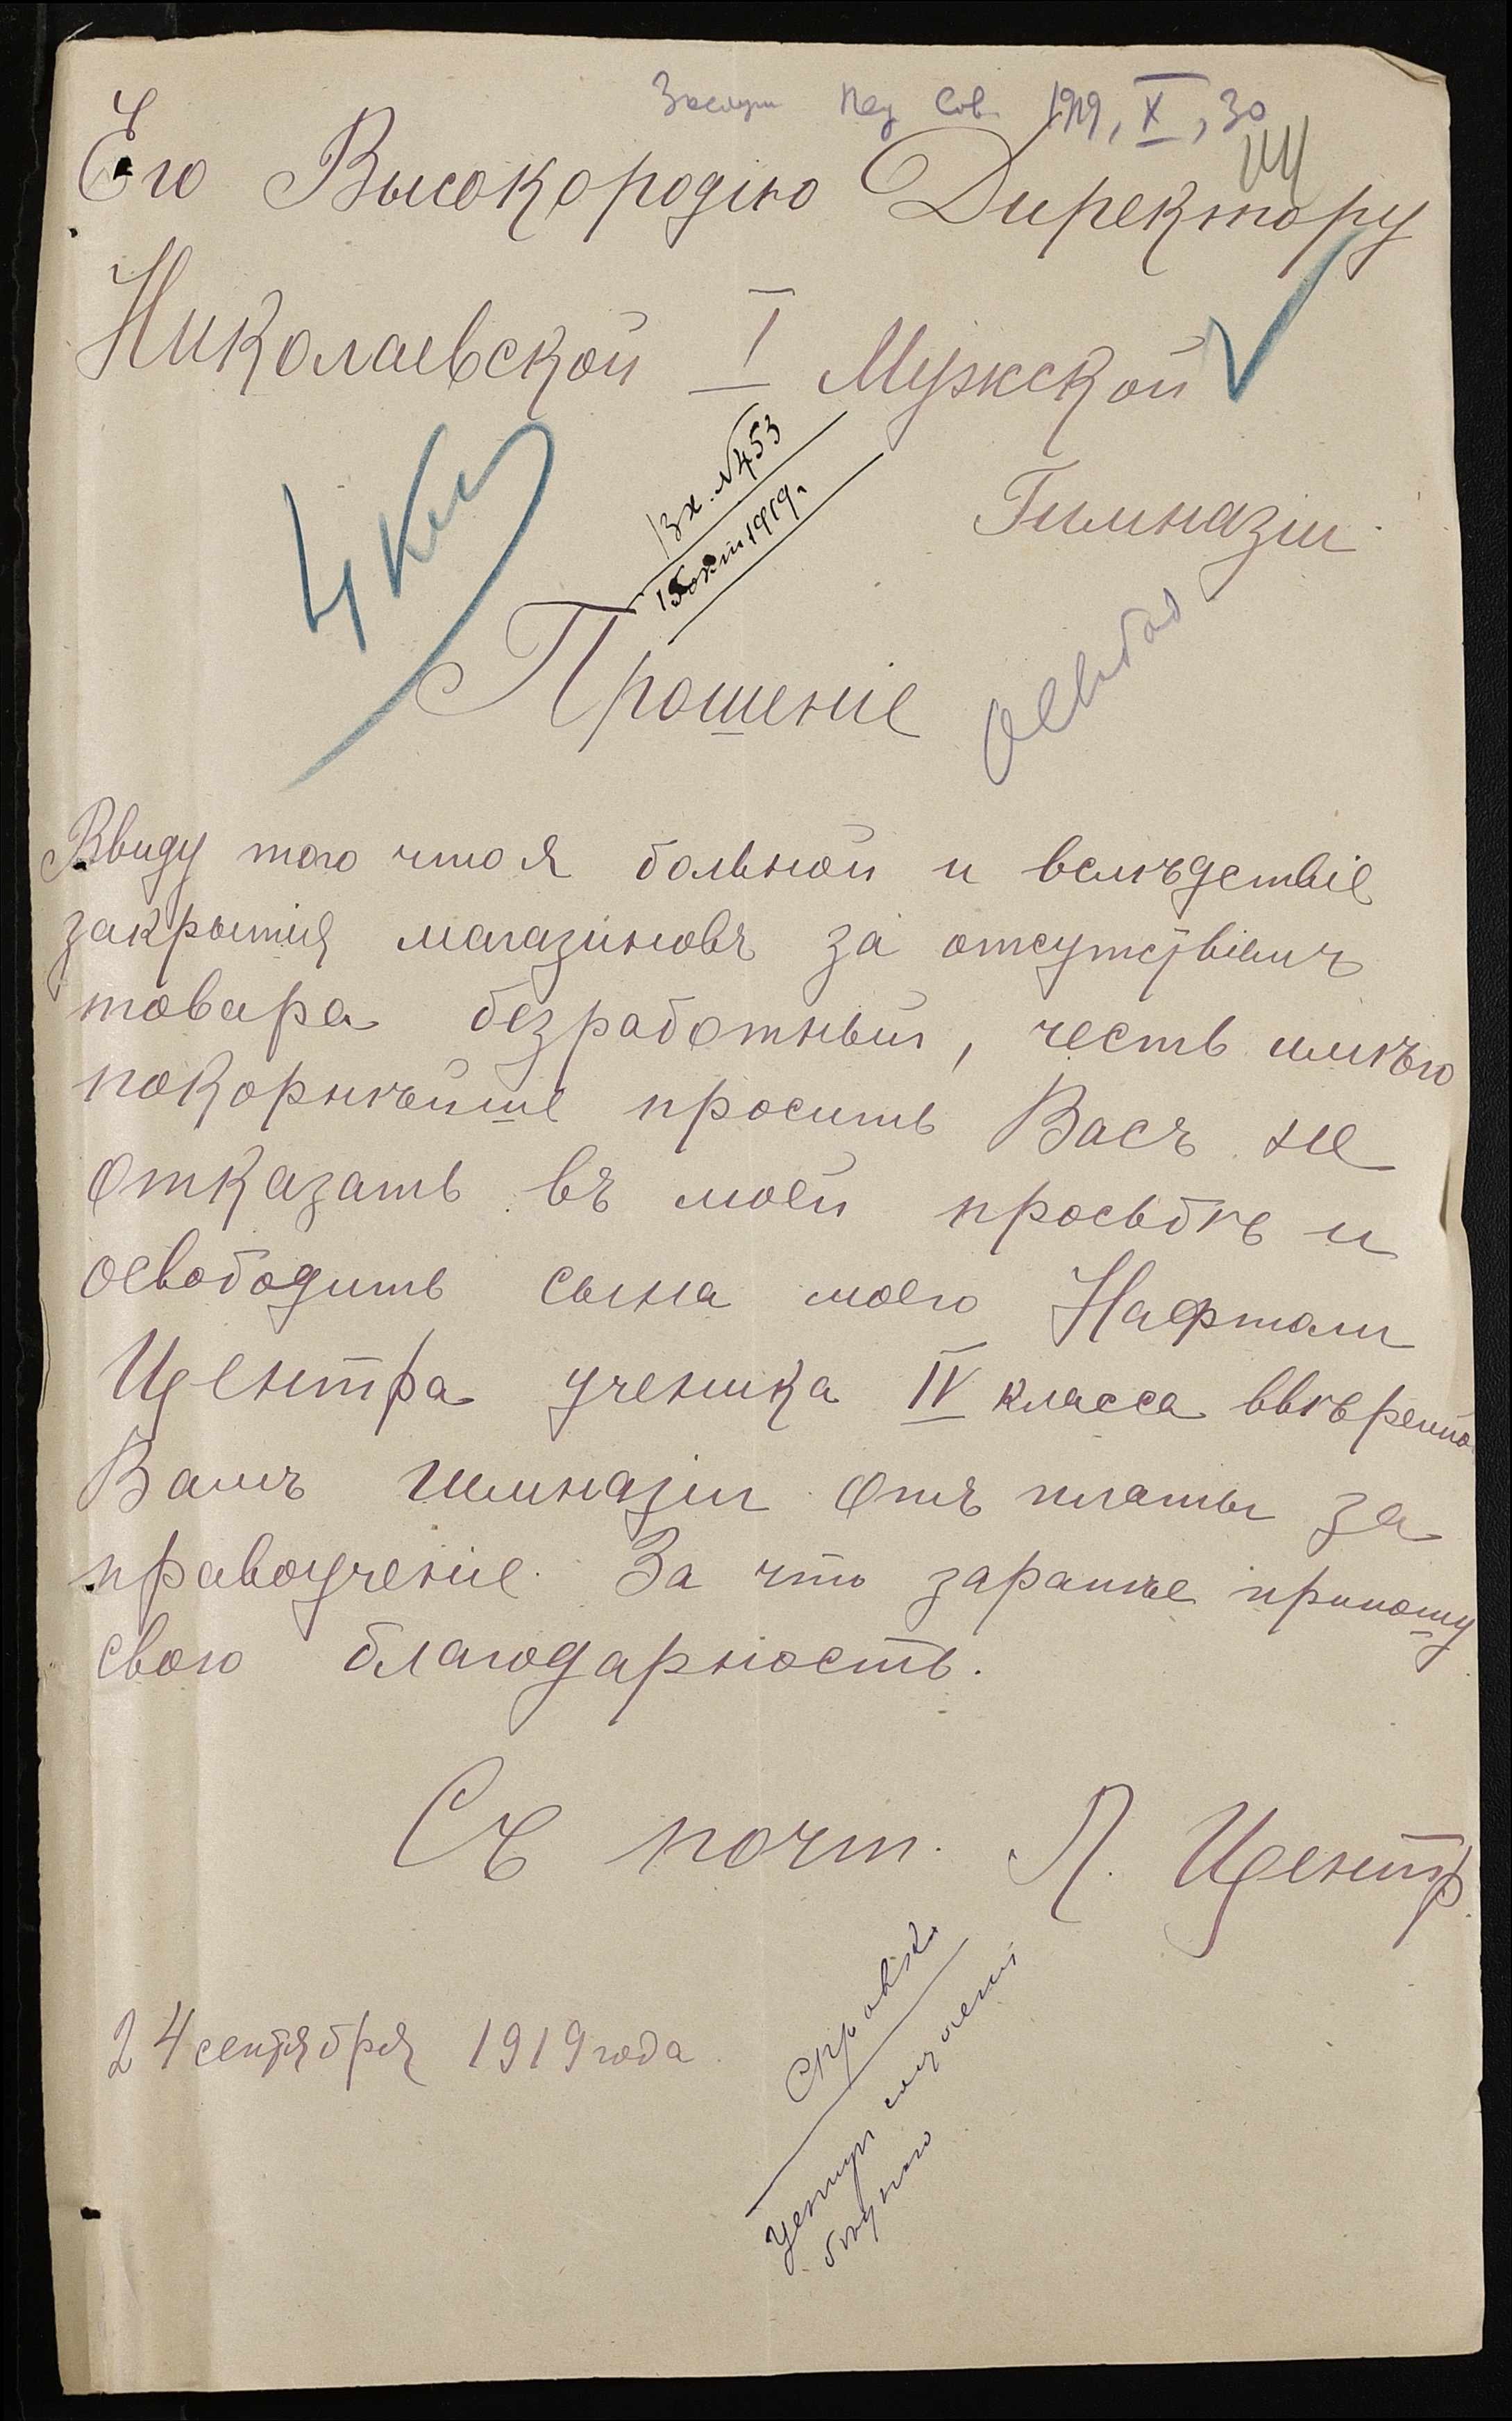 Пед Сов. 1919, X, 30
Его Высокородію Директору
Николаевской I Мужской
Гимназіи
4 кл
Вх. №453
окт 1919 г.
Прошеніе
Освобод
Ввиду того что я больной и вслѣдствіе
закрытія магазиновъ за отсутствіемъ
товара безработный, честь имѣю
покорнѣйше просить Васъ не
отказать въ моей просьбѣ и
освободить сына моего Нафтали
Центра ученика IV класса ввѣренной
Вамъ гимназіи отъ платы за
правоученіе. За что заранѣе приношу
свою благодарность.
Съ почт. Л. Центр.
24 сентября 1919 года
Справка
Центръ
бѣднаго